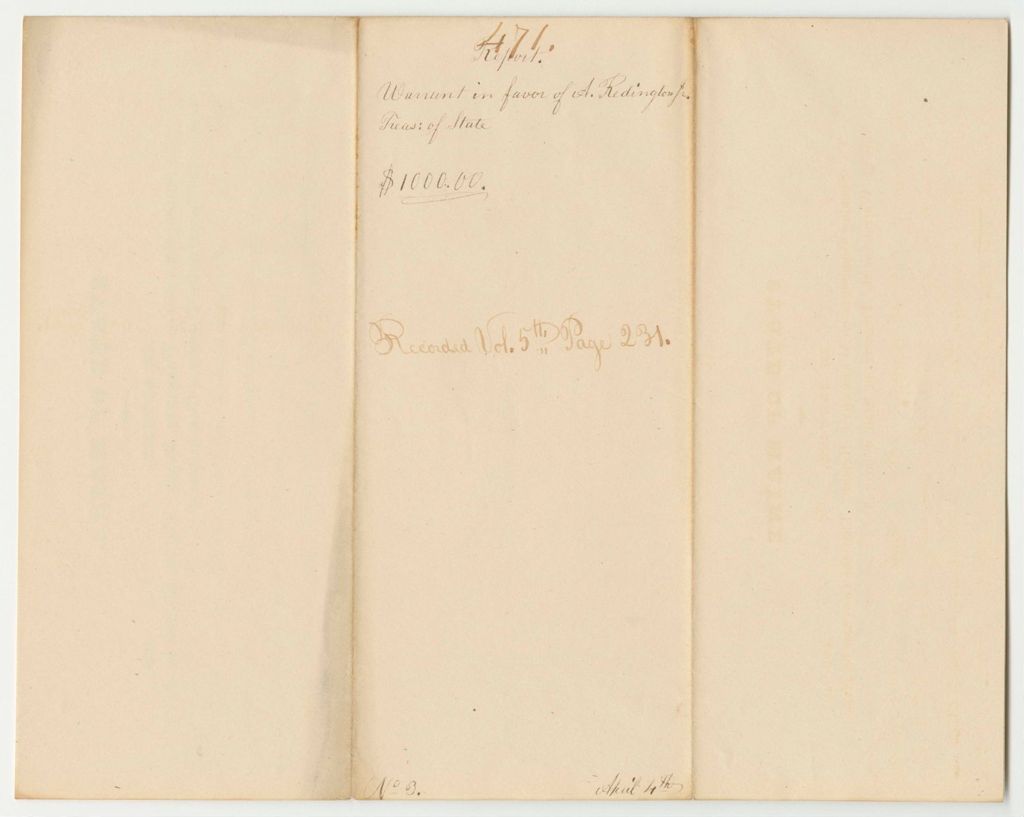 471.
Report.
Warrant in favor of A. Redington Jr.
Treas: of State
$1000.00.
Recorded Vol. 5th Page 231.
No 3. April 4th